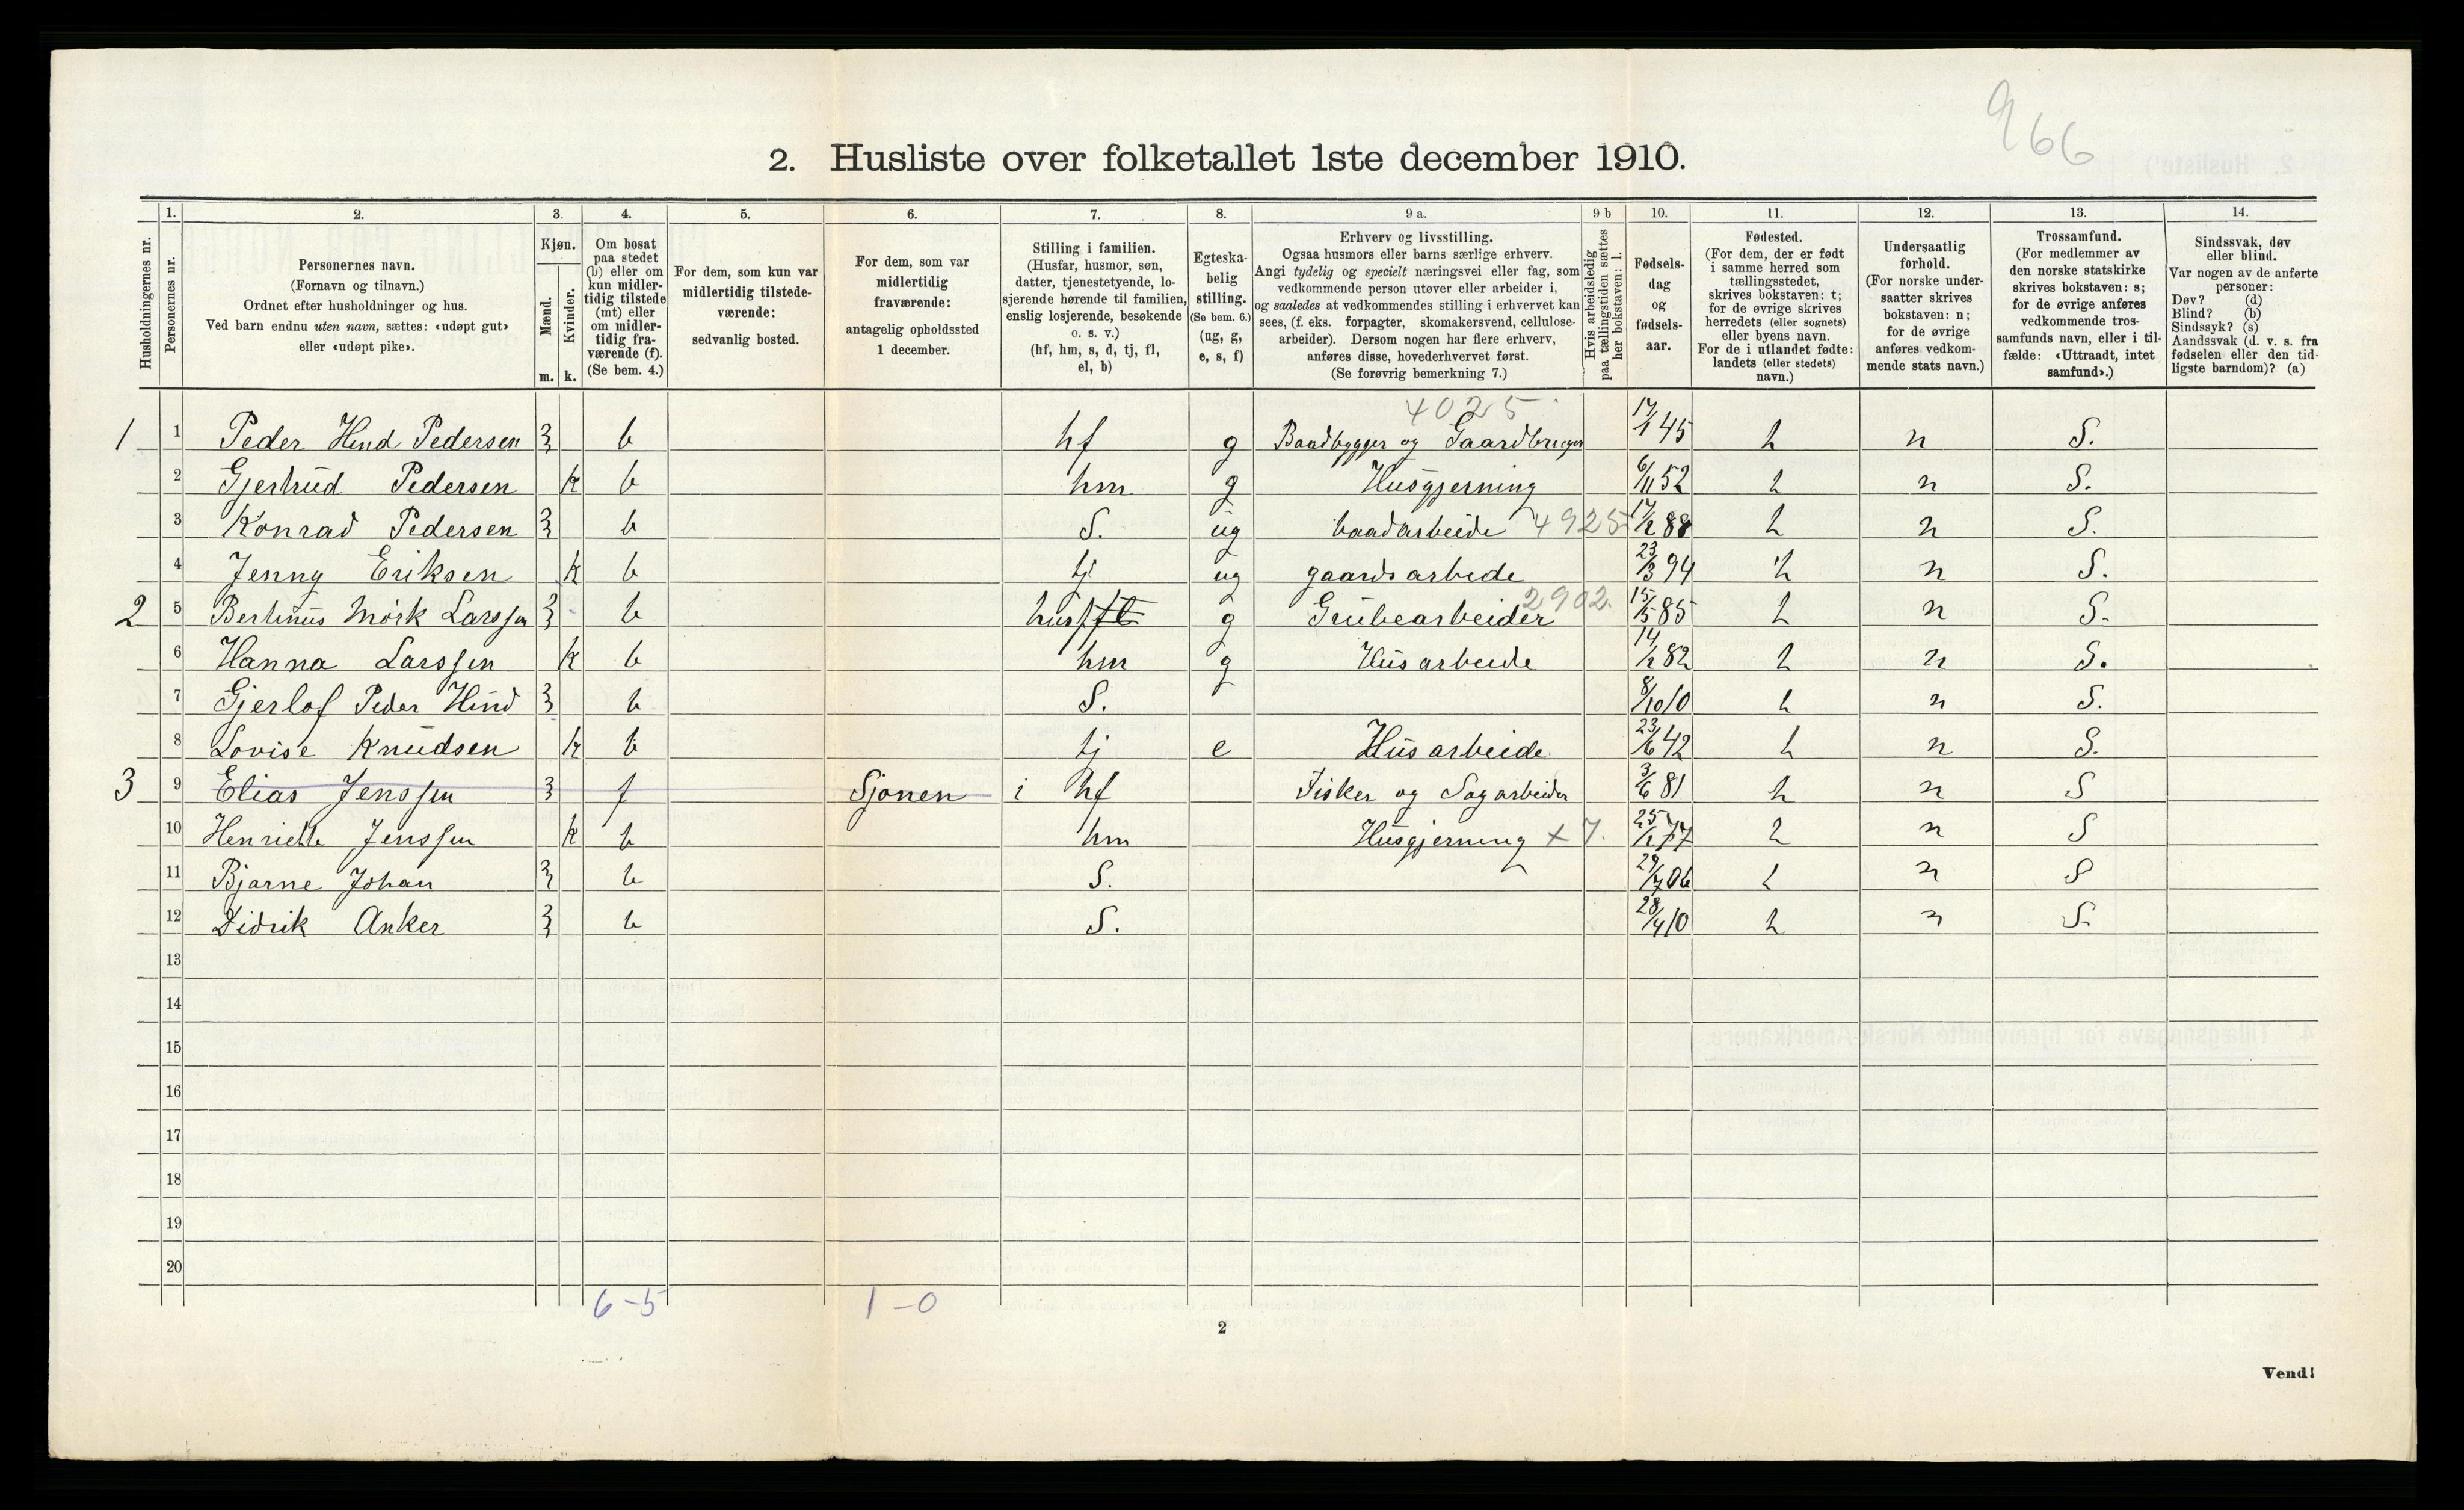 966
2. Husliste over folketallet 1ste december 1910.
Husholdningernes nr.
1. 2. 3. 4. 5. 6. 7. 8. 9 a. 9 b 10. 11. 12. 13. 14.
Personernes nr.
Personernes navn.
(Fornavn og tilnavn.)
Ordnet efter husholdninger og hus.
Ved barn endnu uten navn, sættes: «udøpt gut»
eller «udøpt pike».
Kjøn.
Mænd.
Kvinder.
m. k.
Om bosat
paa stedet
(b) eller om
kun midler-
tidig tilstede
(mt) eller
om midler-
tidig fra-
værende (f).
(Se bem. 4.)
For dem, som kun var
midlertidig tilstede-
værende:
sedvanlig bosted.
For dem, som var
midlertidig
fraværende:
antagelig opholdssted
1 december.
Stilling i familien.
(Husfar, husmor, søn,
datter, tjenestetyende, lo-
sjerende hørende til familien,
enslig losjerende, besøkende
o. s. v.)
(hf, hm, s, d, tj, fl,
el, b)
Egteska-
belig
stilling.
(Se bem. 6.)
(ug, g,
e, s, f)
Erhverv og livsstilling.
Ogsaa husmors eller barns særlige erhverv.
Angi tydelig og specielt næringsvei eller fag, som
vedkommende person utøver eller arbeider i,
og saaledes at vedkommendes stilling i erhvervet kan
sees, (f. eks. forpagter, skomakersvend, cellulose-
arbeider). Dersom nogen har flere erhverv,
anføres disse, hovederhvervet først.
(Se forøvrig bemerkning 7.)
Hvis arbeidsledig
paa tællingstiden sættes
her bokstaven: l.
Fødsels-
dag
og
fødsels-
aar.
Fødested.
(For dem, der er født
i samme herred som
tællingsstedet,
skrives bokstaven: t;
for de øvrige skrives
herredets (eller sognets)
eller byens navn.
For de i utlandet fødte:
landets (eller stedets)
navn.)
Undersaatlig
forhold.
(For norske under-
saatter skrives
bokstaven: n;
for de øvrige
anføres vedkom-
mende stats navn.)
Trossamfund.
(For medlemmer av
den norske statskirke
skrives bokstaven: s;
for de øvrige anføres
vedkommende tros-
samfunds navn, eller i til-
fælde: «Uttraadt, intet
samfund».)
Sindssvak, døv
eller blind.
Var nogen av de anførte
personer:
Døv? (d)
Blind? (b)
Sindssyk? (s)
Aandssvak (d. v. s. fra
fødselen eller den tid-
ligste barndom)? (a)
4025
1 1 Peder Hind Pedersen b hf g Baadbygger og Gaardbruger 17/1 45 n S.
2 Gjertrud Pedersen k b hm g Husgjerning 6/11 52 n S.
3 Konrad Pedersen b S. ug baadarbeide 4925 17/2 88 n S.
4 Jenny Eriksen k b tj ug gaardsarbede 23/3 94 n S.
2902.
2 5 Bertinus Mørk Larssen b g Grubearbeider 15/5 85 n S.
6 Hanna Larssen k b hm g Husarbeide 14/2 82 n S.
7 Gjerlof Peder Hind b S. 8/10 10 n S.
8 Lovise Knudsen k b tj e Husarbeide 23/6 42 n S.
3 9 Elias Jenssen f Sjonen i hf Fisker og Sagarbeider 3/6 81 n S
10 Henriette Jenssen k b hm Husgjerning x 7. 25/2 77 n S
11 Bjarne Johan b S. 29/7 06 n S
12 Didrik Anker b S. 28/4 10 n S.
13
14
15
16
17
18
19
20
6-5 1-0
2
Vend!